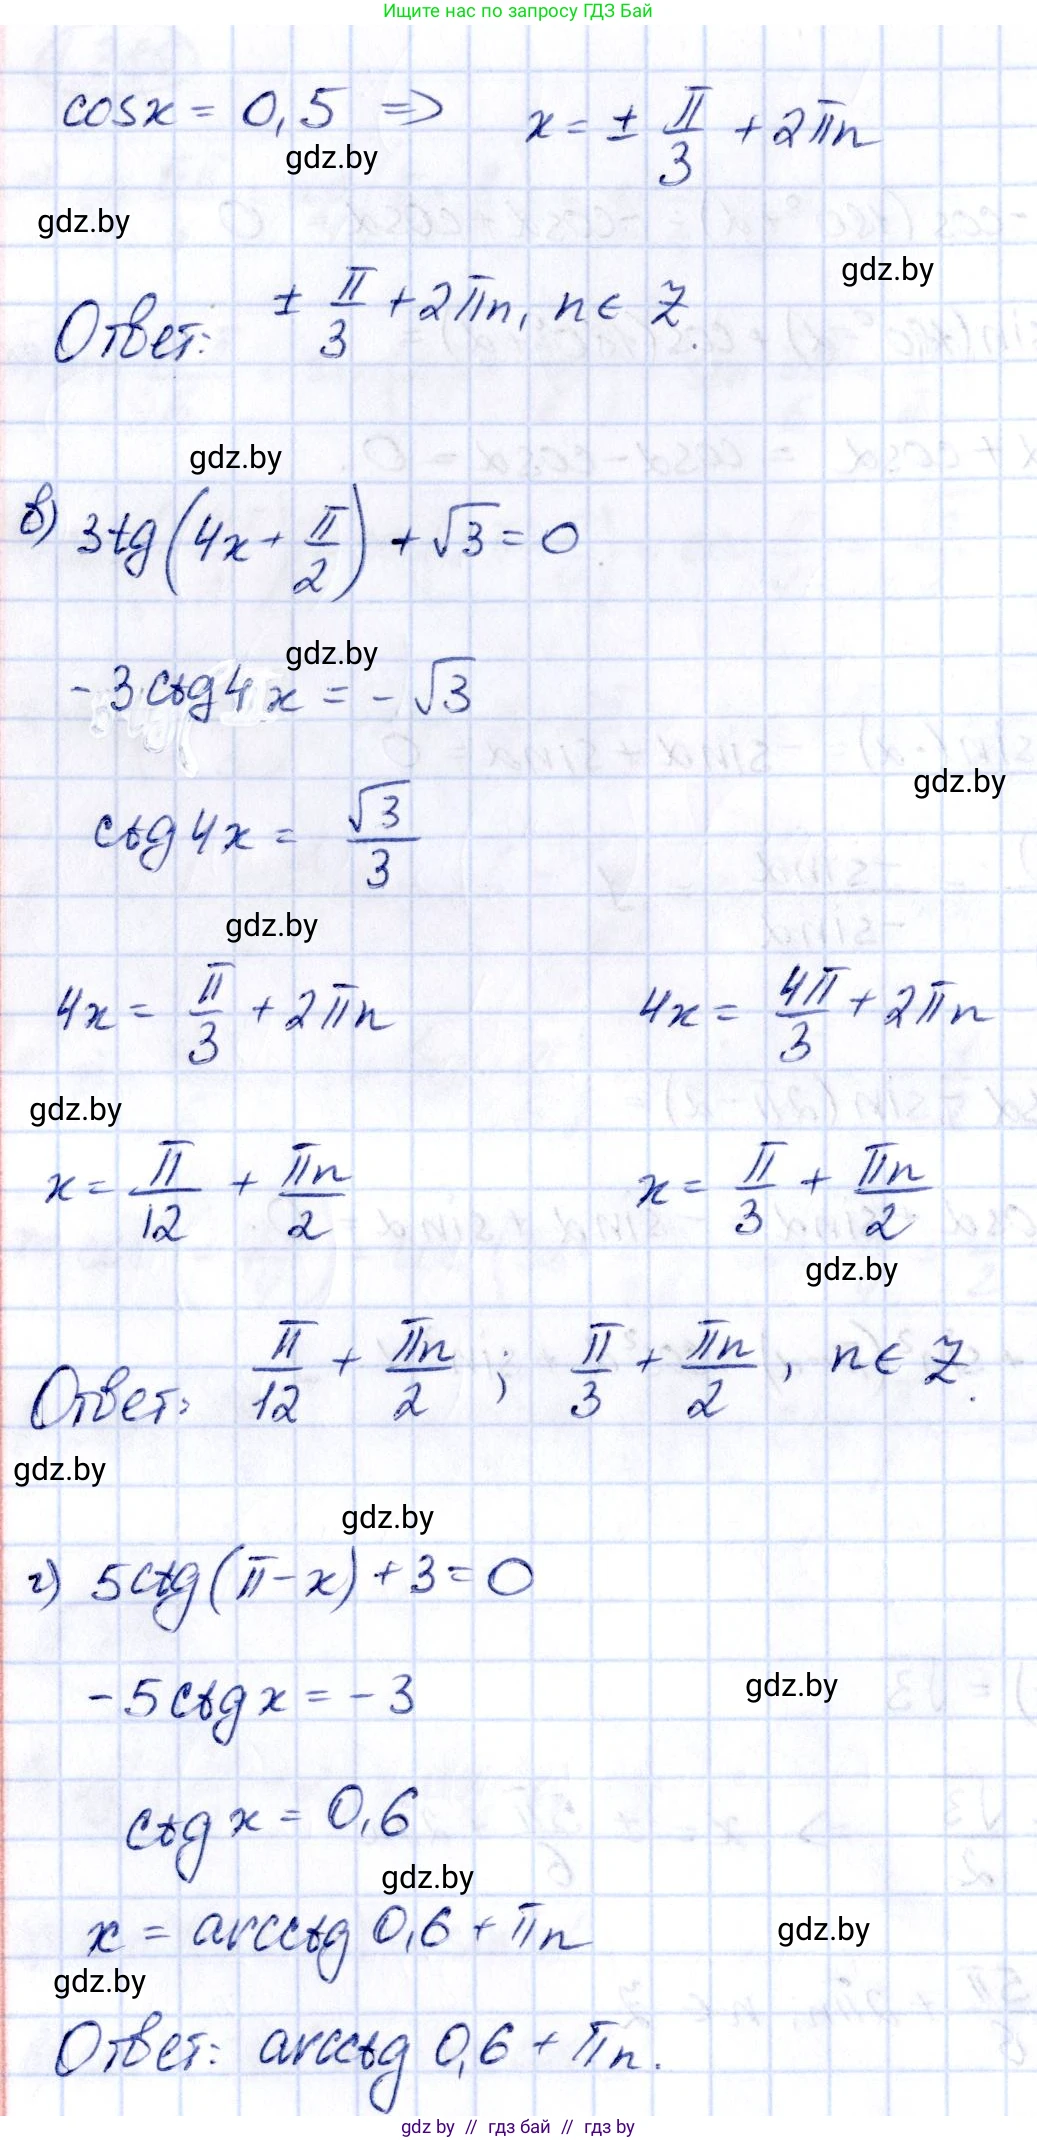 Ищите нас по запросу ГДЗ Бай
cosx = 0,5 => x = ± π/3 + 2πn
gdz.by
gdz.by
gdz.by
Ответ: ± π/3 + 2πn, n ∈ Z.
gdz.by
в) 3tg(4x + π/2) + √3 = 0
gdz.by
-3ctg4x = -√3
gdz.by
ctg4x = √3/3
gdz.by
4x = π/3 + 2πn 4x = 4π/3 + 2πn
gdz.by
x = π/12 + πn/2 x = π/3 + πn/2
gdz.by
Ответ: π/12 + πn/2 ; π/3 + πn/2 , n ∈ Z.
gdz.by
gdz.by
г) 5ctg(π-x) + 3 = 0
gdz.by
-5ctgx = -3
ctgx = 0,6
gdz.by
x = arcctg 0,6 + πn
gdz.by
gdz.by
Ответ: arcctg 0,6 + πn.
gdz by // гдз бай // гдз by